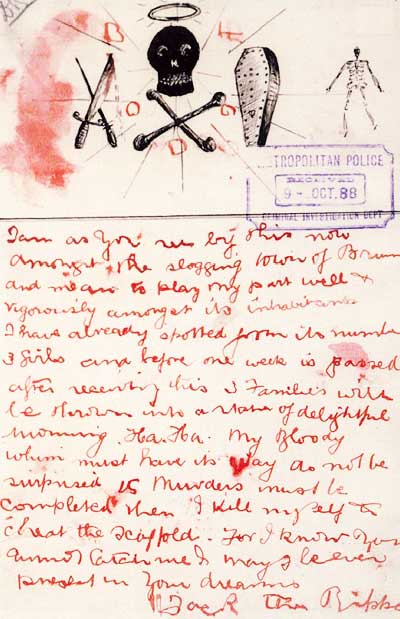 TROPOLITAN POLICE
RECEIVED
9 - OCT. 88
CRIMINAL INVESTIGATION DEPT
I am as you see by this now
amongst the slogging town of Brum
and mean to play my part well &
vigorously amongst its inhabitants
I have already spotted from its numbe
3 girls and before one week is passed
after receiving this 3 Families will
be thrown into a state of delightful
mourning. Ha. Ha. My Bloody
whim must have its way do not be
surprised 15 Murders must be
completed then I kill myself to
cheat the scaffold. For I know you
cannot catch me & I may be ever
present in your dreams
Jack the Rippe